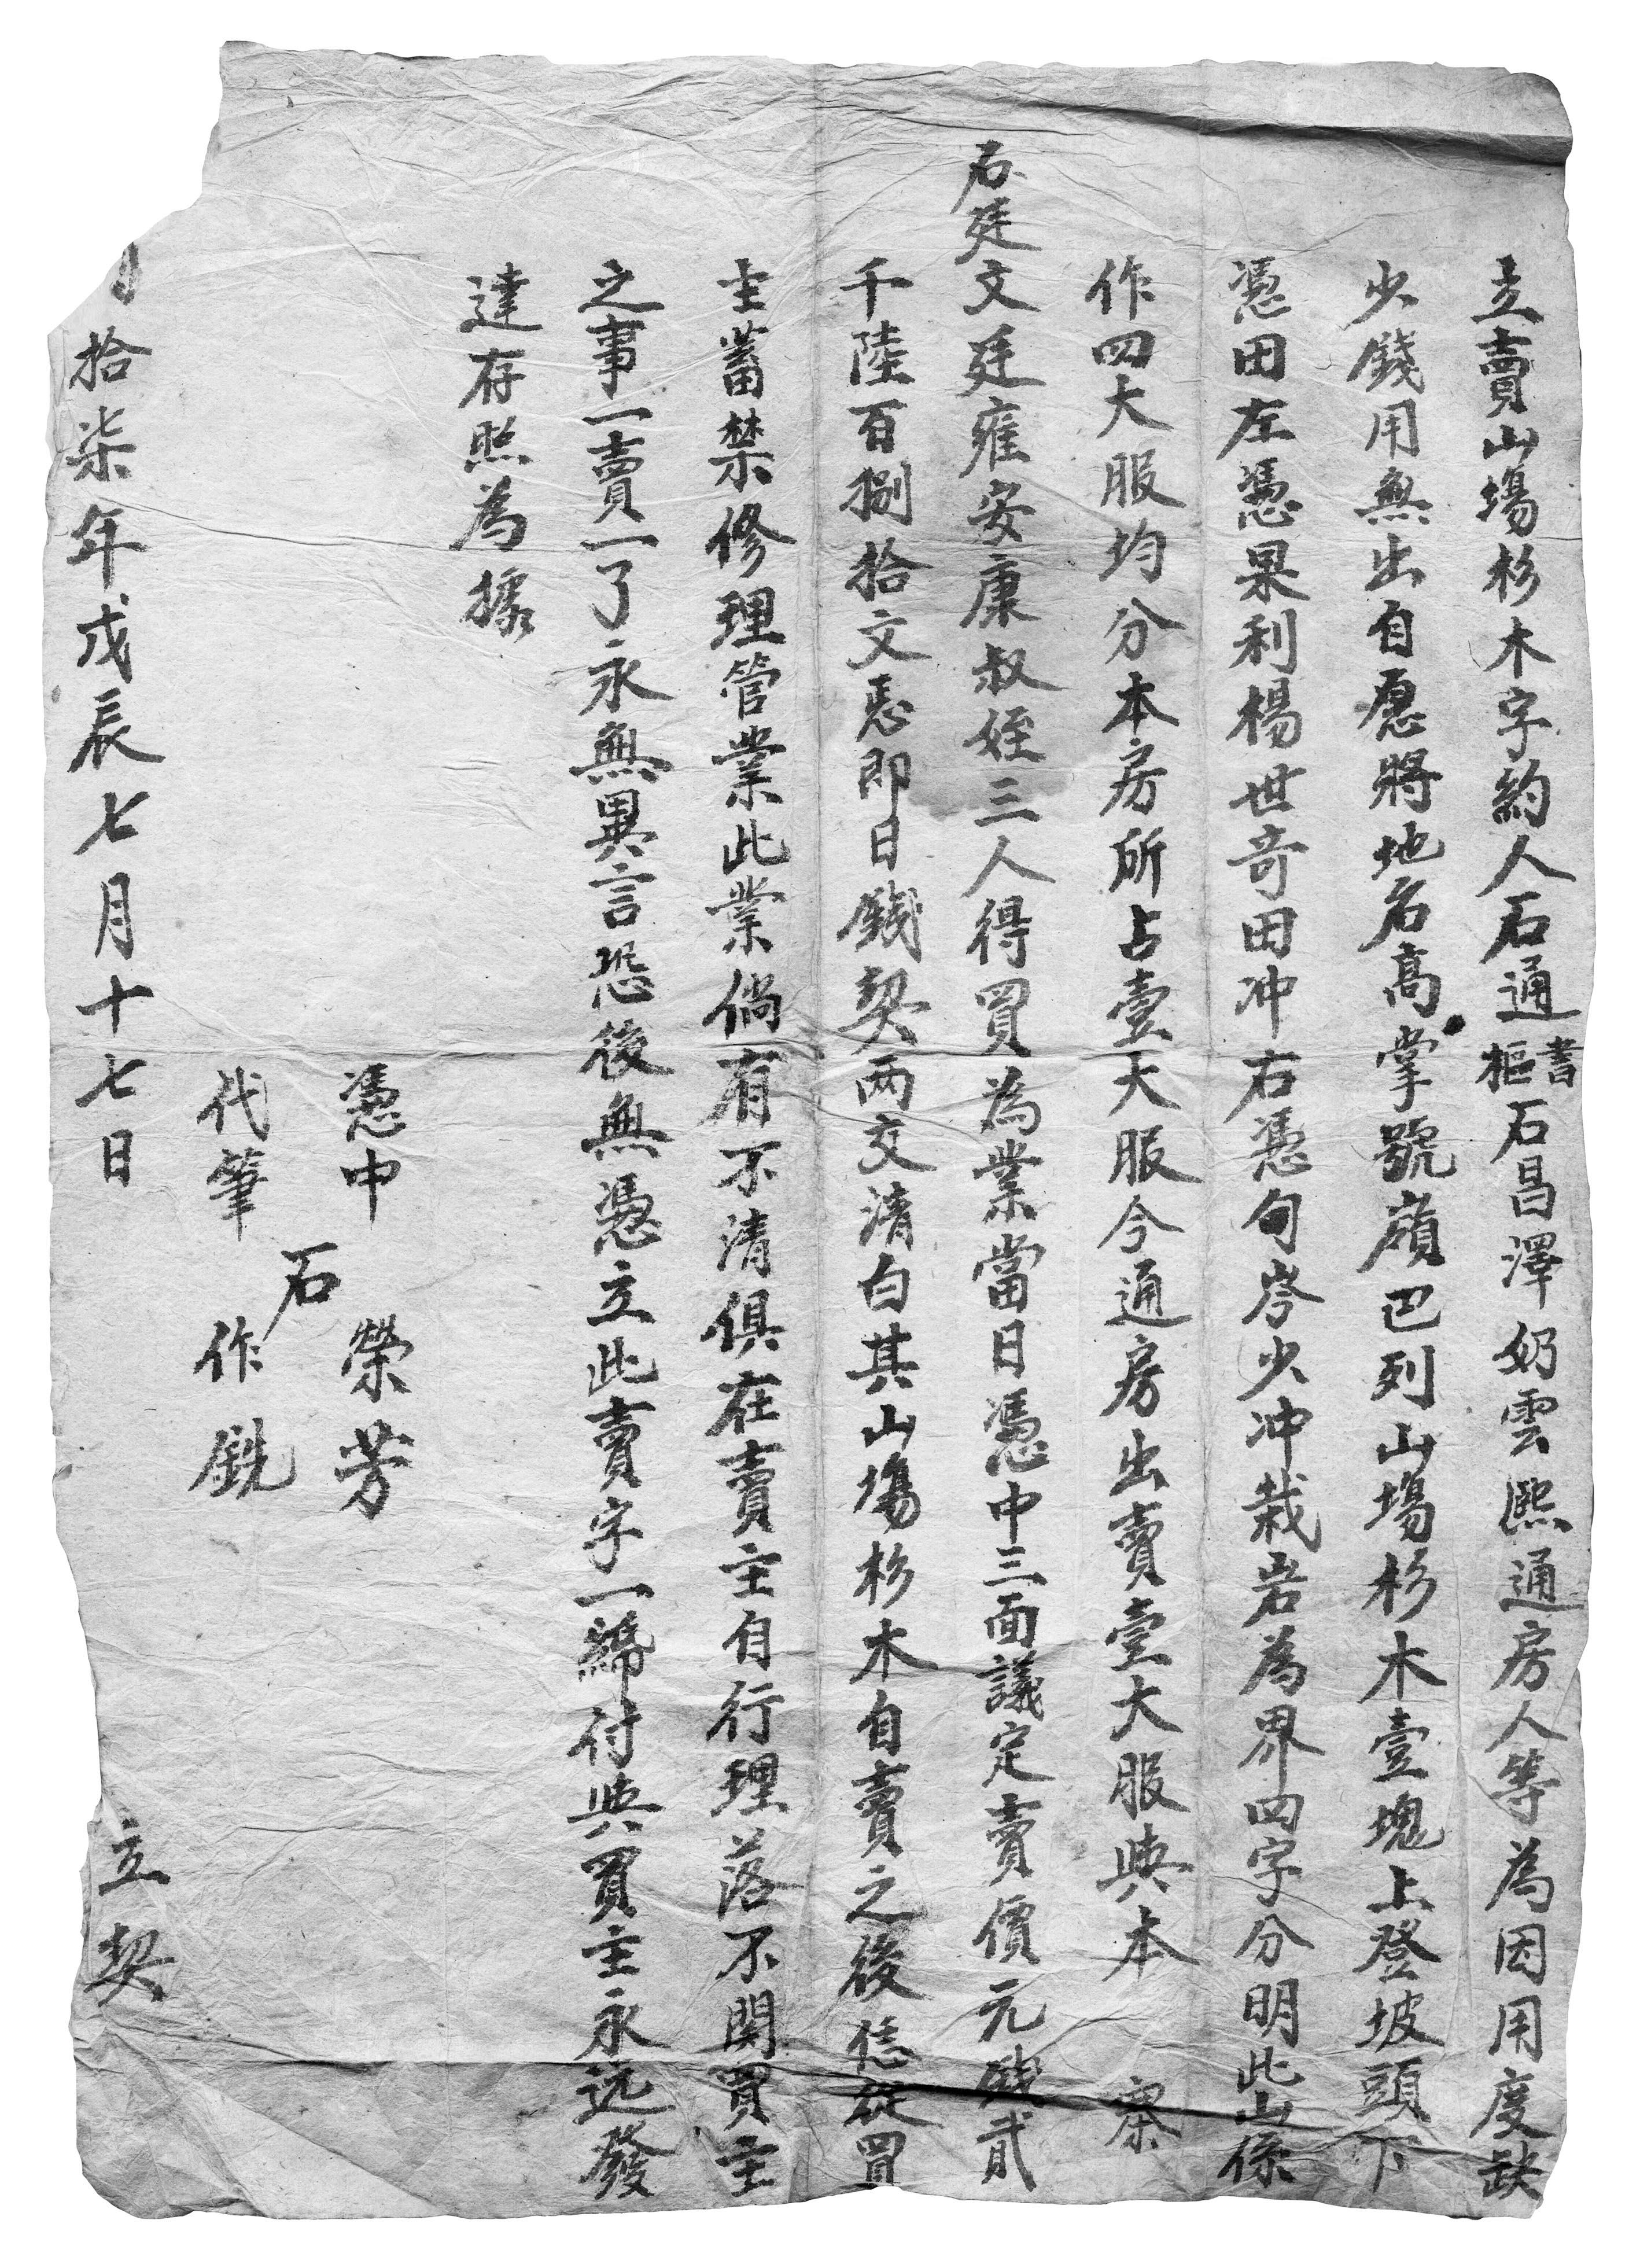 立賣山塲杉木字約人石通書樞石昌澤奶雲熙通房人等為因用度缺
少錢用無出自愿將地名高掌號嶺巴列山塲杉木壹塊上登坡頭下
憑田左憑果利楊世奇田冲右憑旬岑少冲栽岩為界四字分明此山係
作四大服均分本房所占壹大服今通房出賣壹大服與本寨
石廷文廷雍安康叔姪三人得買為業當日憑中三面議定賣價元錢貳
千陸百捌拾文恁即日錢契两交清白其山塲杉木自賣之後恁從買
主蓄禁修理管業此業倘有不清俱在賣主自行理落不関買主
之事一賣一了永無異言恐後無憑立此賣字一紙付與買主永远發
達存照為據
憑中 石 榮芳
代筆 作銑
拾柒年戊辰七月十七日 立契